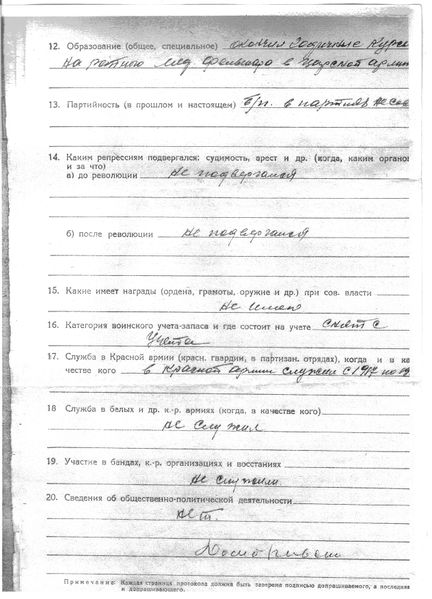 12. Образование (общее, специальное) окончил годичные курсы
на ротного мед. фельдшера в царской армии
13. Партийность (в прошлом и настоящем) б/п. в партиях не сос
14. Каким репрессиям подвергался: судимость, арест и др. (когда, каким органом
и за что)
а) до революции не подвергался
б) после революции не подвергался
15. Какие имеет награды (ордена, грамоты, оружие и др.) при сов. власти
не имел
16. Категория воинского учета-запаса и где состоит на учете снят с
учета
17. Служба в Красной армии (красн. гвардии, в партизан. отрядах), когда и в ка
честве кого в красной армии служил с по
18 Служба в белых и др. к.-р. армиях (когда, в качестве кого)
не служил
19. Участие в бандах, к.-р. организациях и восстаниях
не служил
20. Сведения об общественно-политической деятельности
нет.
Примечание: Каждая страница протокола должна быть заверена подписью допрашиваемого, а последняя
и допрашивающего.